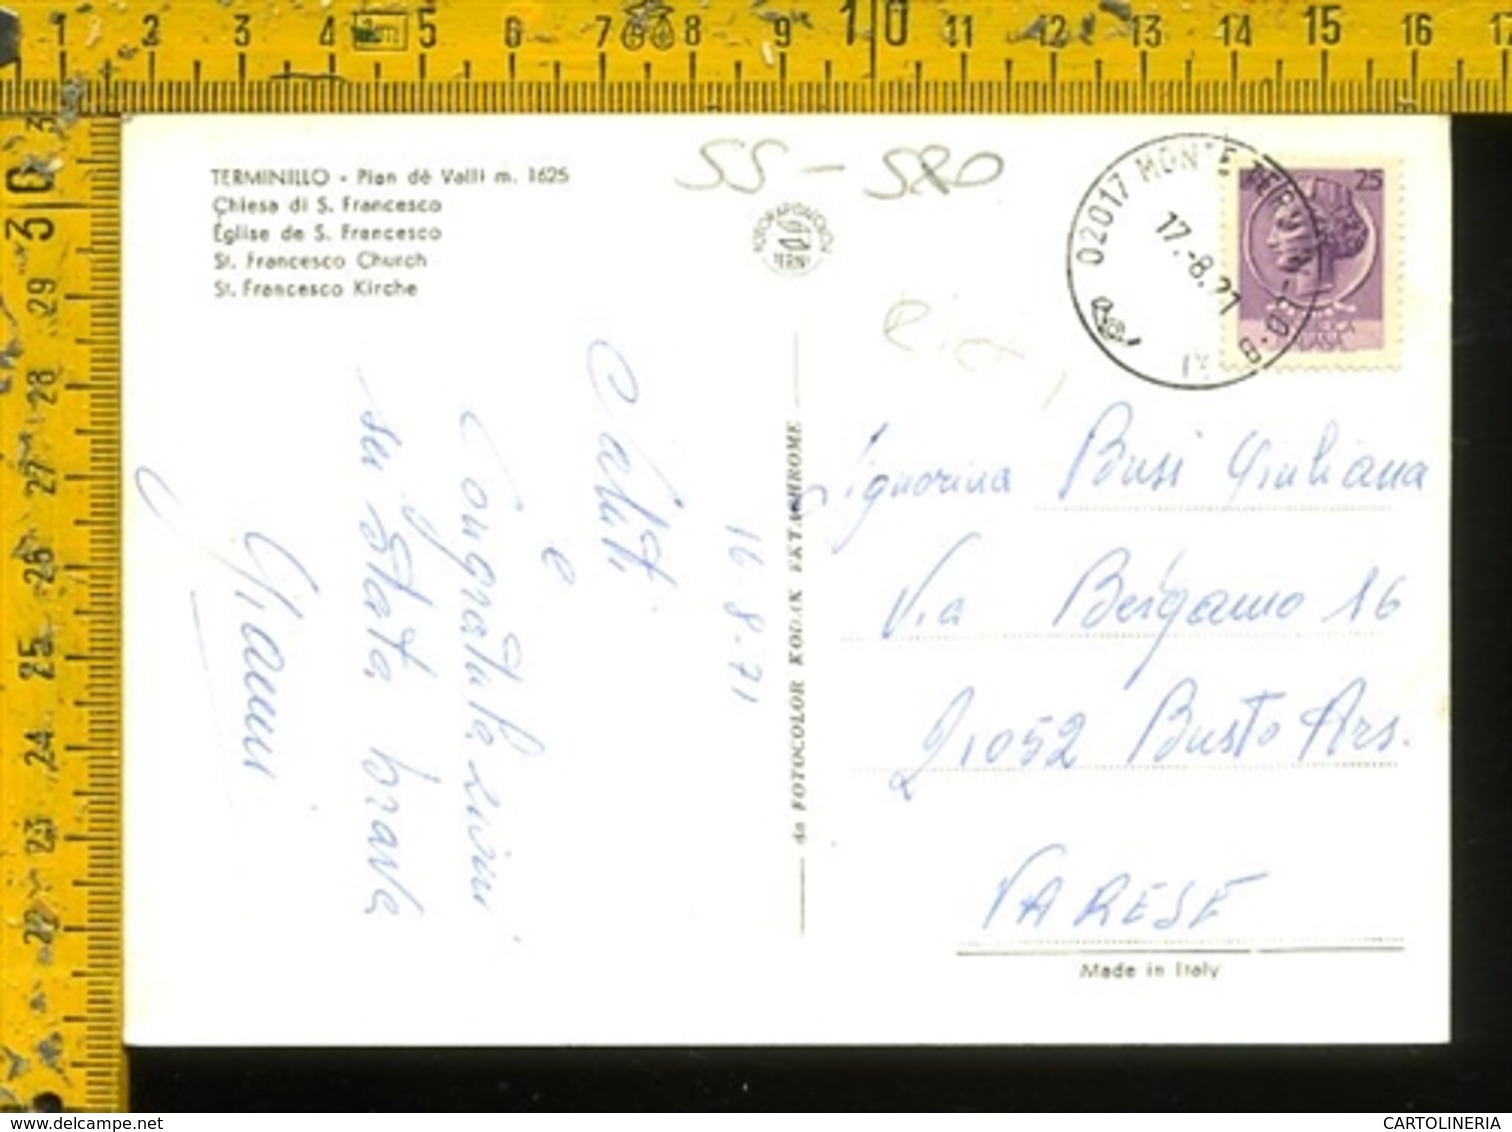 TERMINILLO - Pian dè Valli m. 1625
Chiesa di S. Francesco
Église de S. Francesco
St. Francesco Church
St. Francesco Kirche
55-580
TERNI
02017 MONTE TERMINILLO
17.-8.71
25
Rieti
16.8.71
Saluti
e
Congratulazioni
sei stata brava
Gianni
da FOTOCOLOR KODAK EKTACHROME
Signorina Busi Giuliana
Via Bergamo 16
21052 Busto Ars.
VARESE
Made in Italy
1 2 3 4 5 6 7 8 9 10 11 12 13 14 15 16 17
30 29 28 27 26 25 24 23 22
www.delcampe.net
CARTOLINERIA